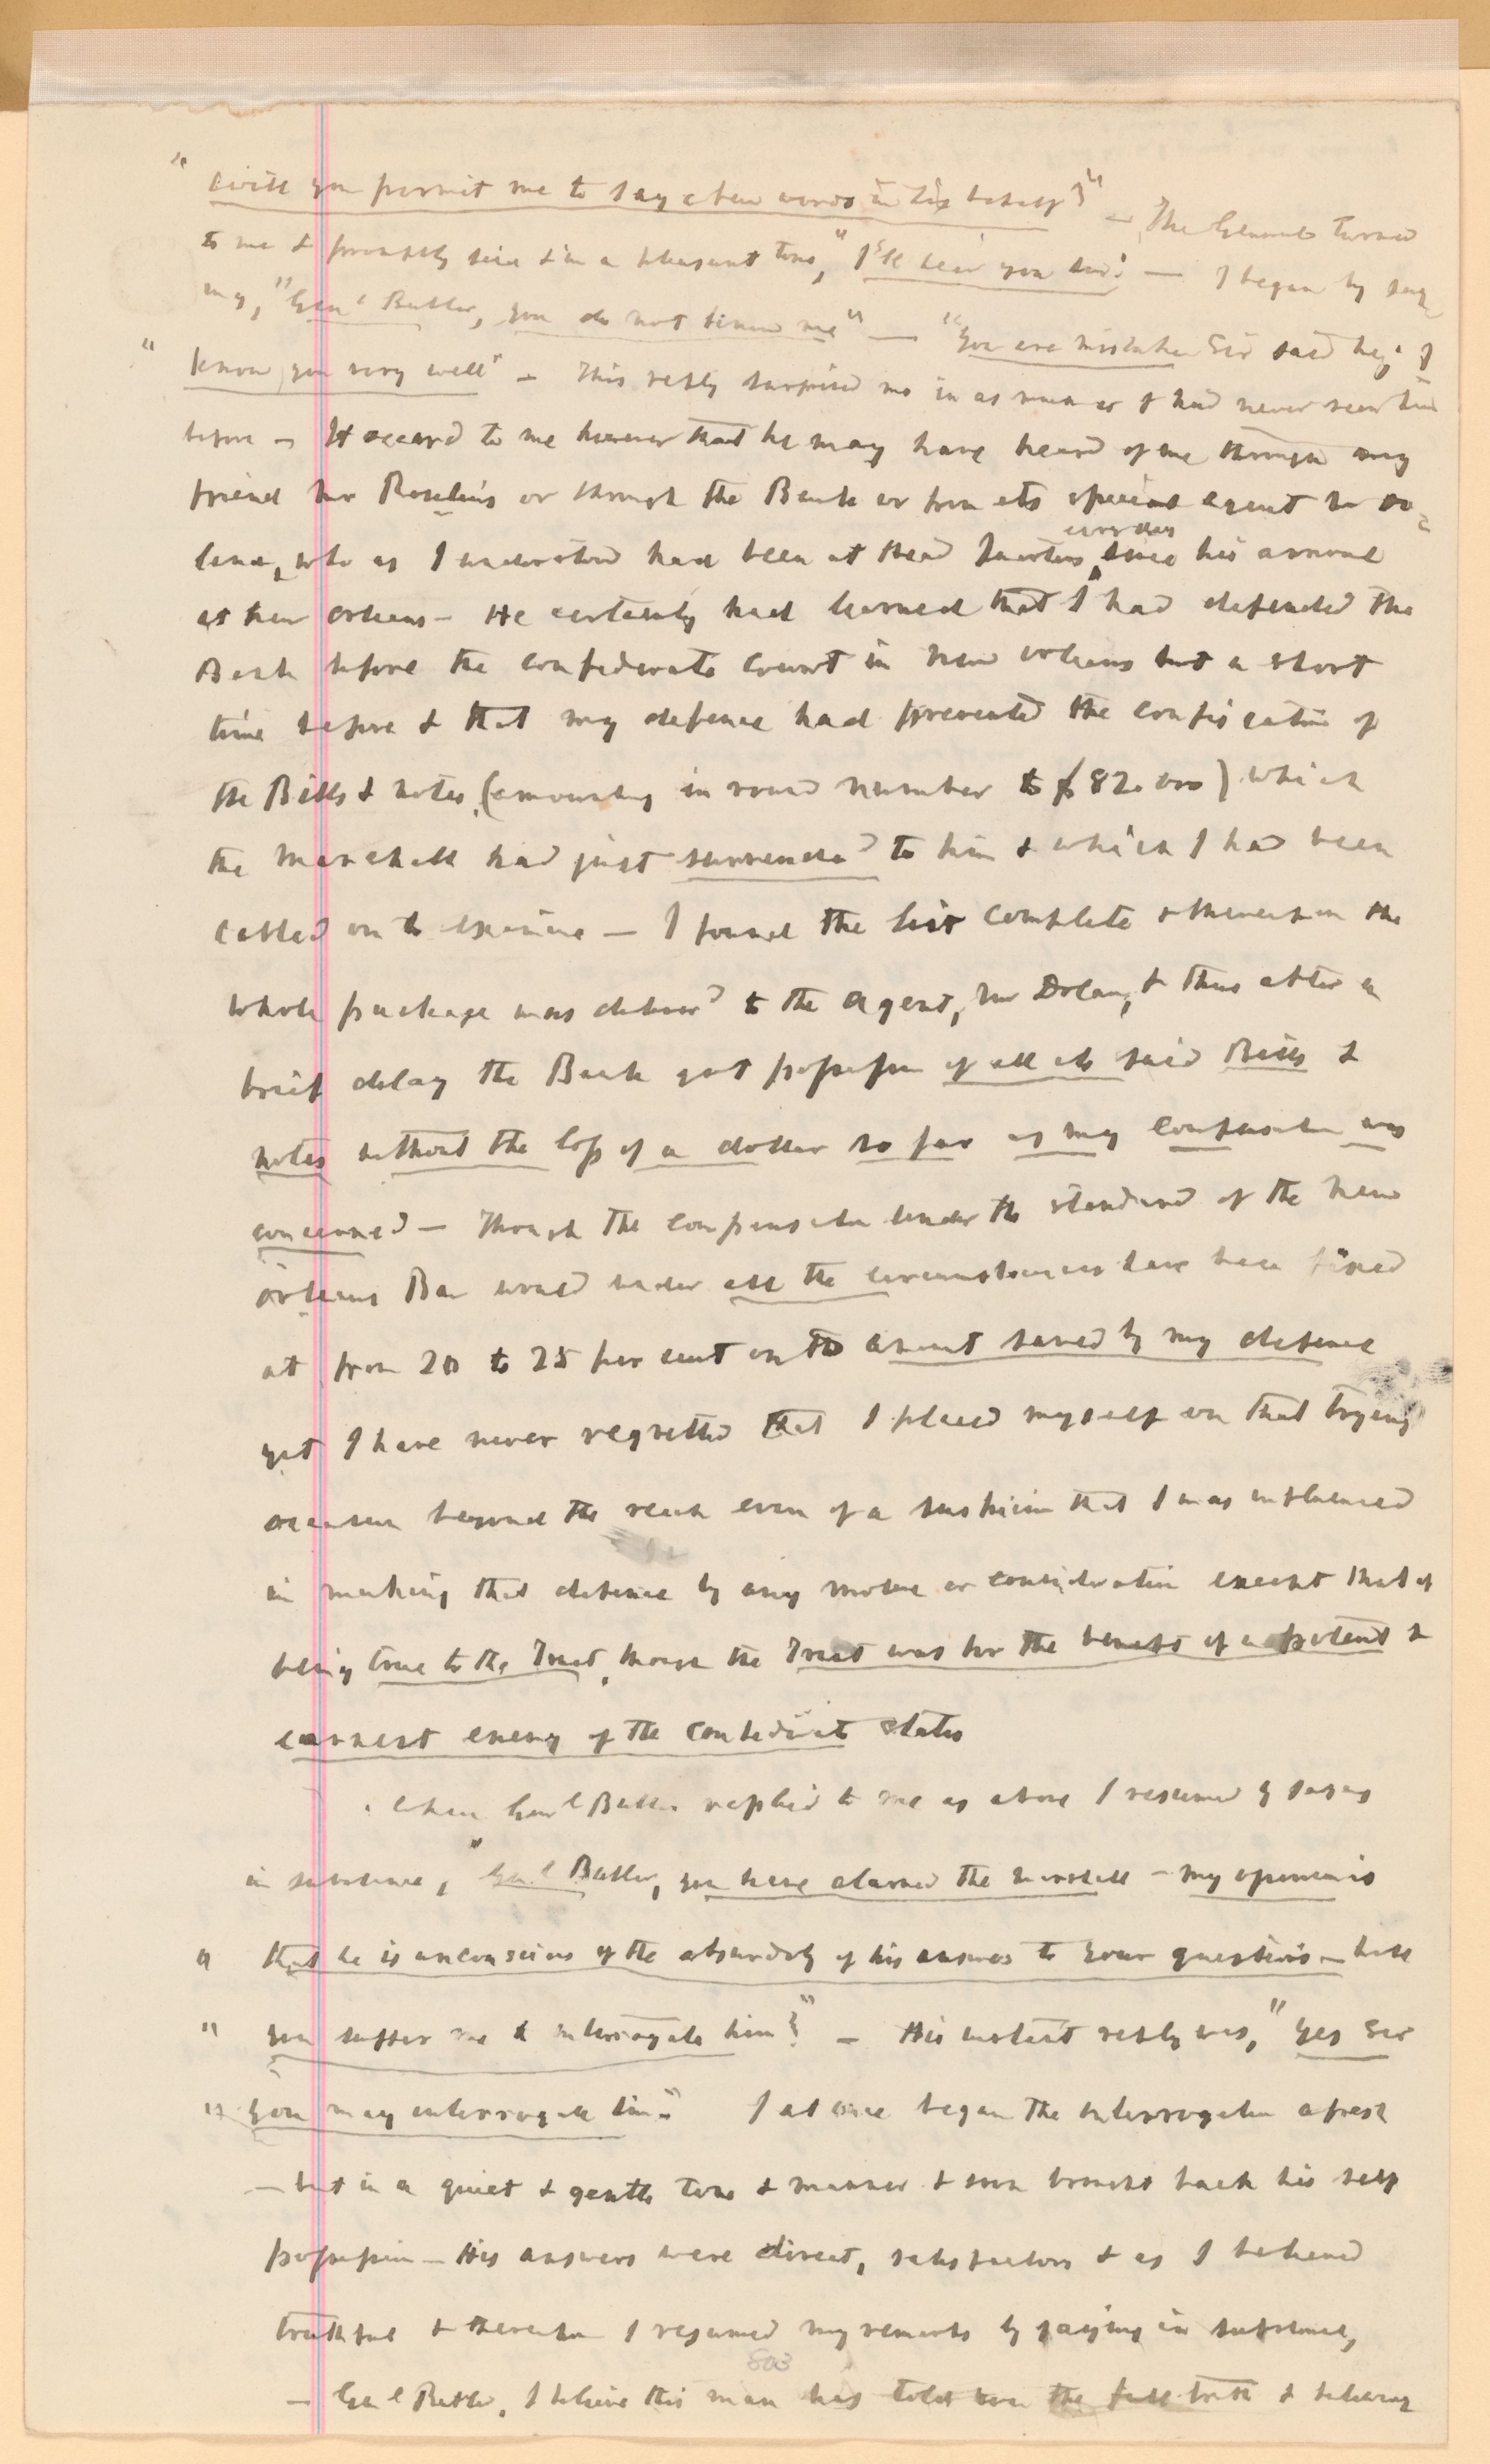 " will you permit me to say a few words in his behalf?" — The General turned
to me & promptly said & in a pleasant tone, "I'll hear you Sir." — I began by say
ing, "Genl Butler, you do not know me" — "You are mistaken Sir said he, "I
" know you very well" — This reply surprised me in as much as I had never seen him
before — It occurd to me however that he may have heard of me through my
friend Mr Roselius or through the Bank or from its special agent Mr Do=
lan, who as I understood had been at Head Quarters every day since his arrival
at New Orleans — He certainly had learned that I had defended the
Bank before the Confederate Court in New Orleans but a short
time before & that my defence had prevented the confiscation of
the Bills & notes, (amounting in round number to $82.000) which
the Marshall had just surrended to him & which I had been
called on to examine — I found the list complete & thereupon the
whole package was deliverd to the Agent, Mr Dolan, & thus after a
brief delay the Bank got possession of all its said Bills &
notes without the loss of a dollar so far as my compensation was
concerned — Though the compensation under the standard of the New
Orleans Bar would under all the circumstances have been fixed
at from 20 to 25 per cent on the amount saved by my defence
yet I have never regretted that I placed myself on that trying
occasion beyond the reach even of a suspicion that I was influenced
in making that defence by any motive or consideration except that of
being true to the Trust, though the Trust was for the benefit of a potent &
earnest enemy of the Confederate States
When Genl Butler replied to me as above I resumed by saying
in substance, "Genl Butler, you have alarmed the Marshall — my opinion is
" that he is unconscious of the absurdity of his answers to your questions — will
" you suffer me to interrogate him?" — His instant reply was, "Yes Sir
" you may interrogate him." I at once began the interrogation afresh
— but in a quiet & gentle tone & manner & soon brought back his self
possession — His answers were direct, satisfactory & as I believed
truthful & thereupon I resumed my remarks by saying in substance,
803
— Genl Butler, I believe this man has told you the full truth & believing